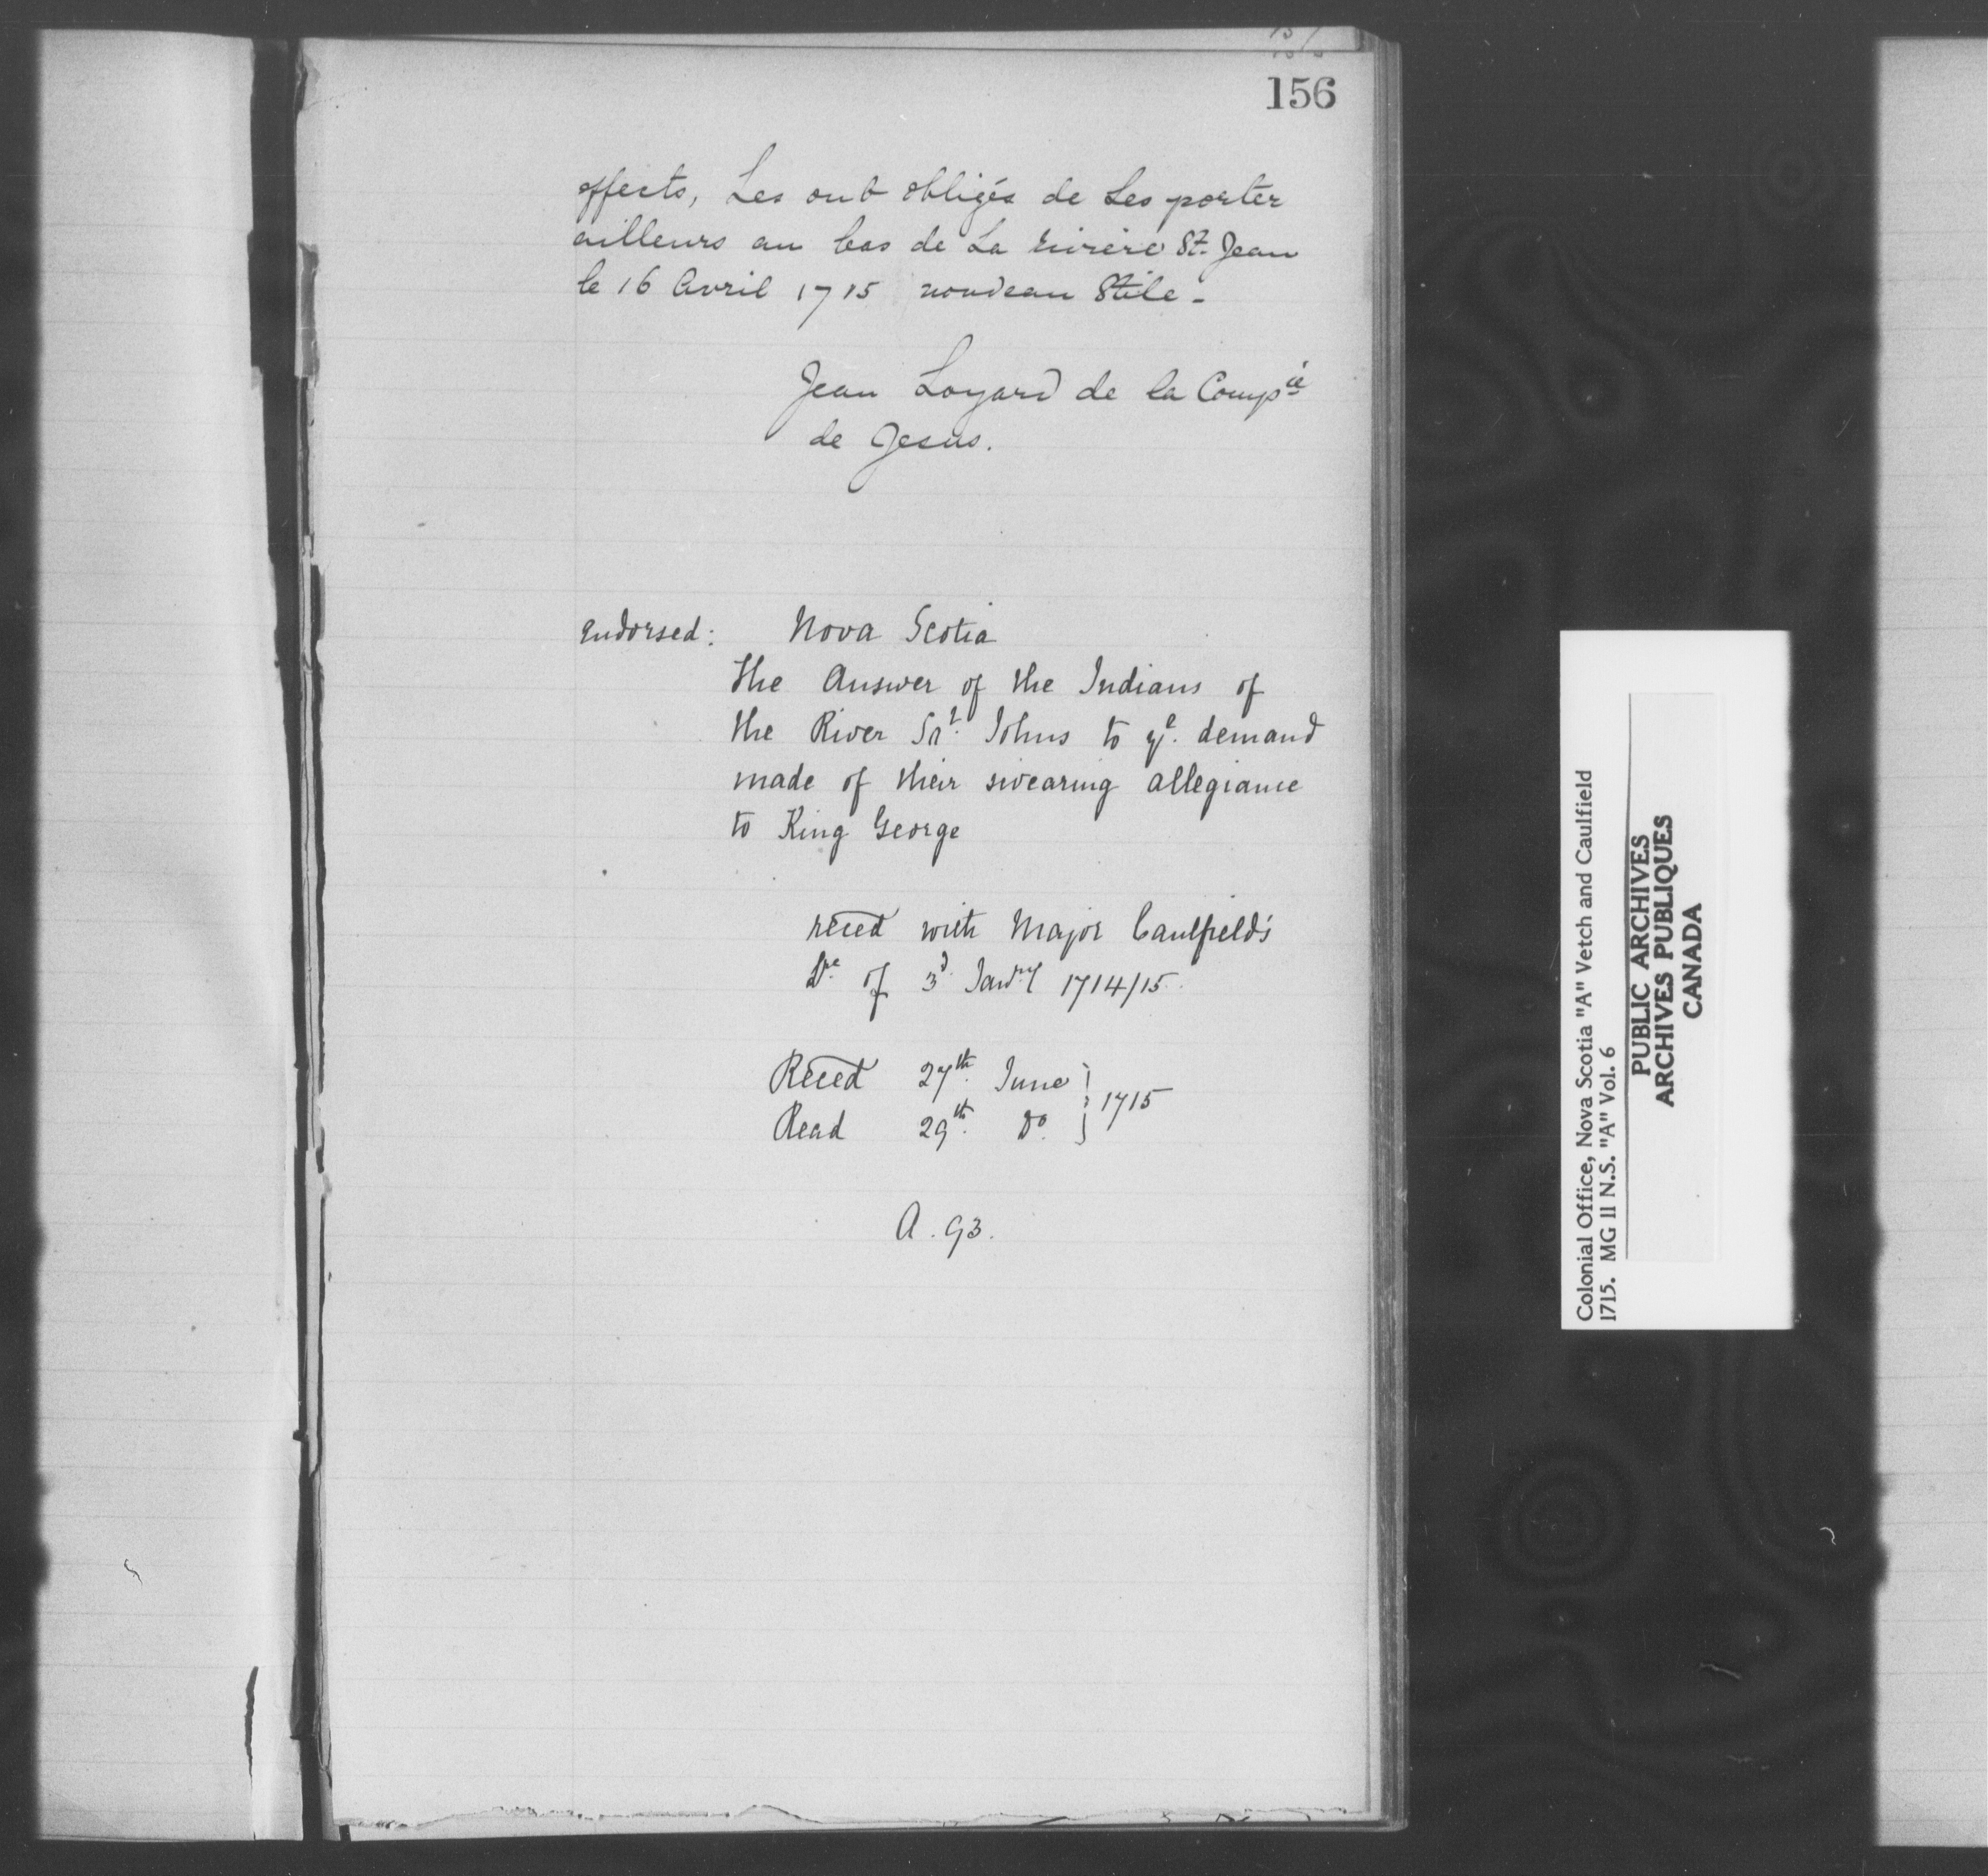 156
effects, Les ont obligés de Les porter
ailleurs au bas de La rivière St. Jean
le 16 Avril 1715 nouveau Stile -
Jean Loyard de la Comp.ie
de Jesus.
Endorsed: Nova Scotia
The Answer of the Indians of
the River Sa.t Johns to y.e demand
made of their swearing allegiance
to King George
reced with Major Caulfield's
L.re of 3.d Jan.ry 1714/15.
Reced 27.th June } 1715
Read 29.th D.o
A. 93.
Colonial Office, Nova Scotia "A" Vetch and Caulfield
1715. MG 11 N.S. "A" Vol. 6
PUBLIC ARCHIVES
ARCHIVES PUBLIQUES
CANADA